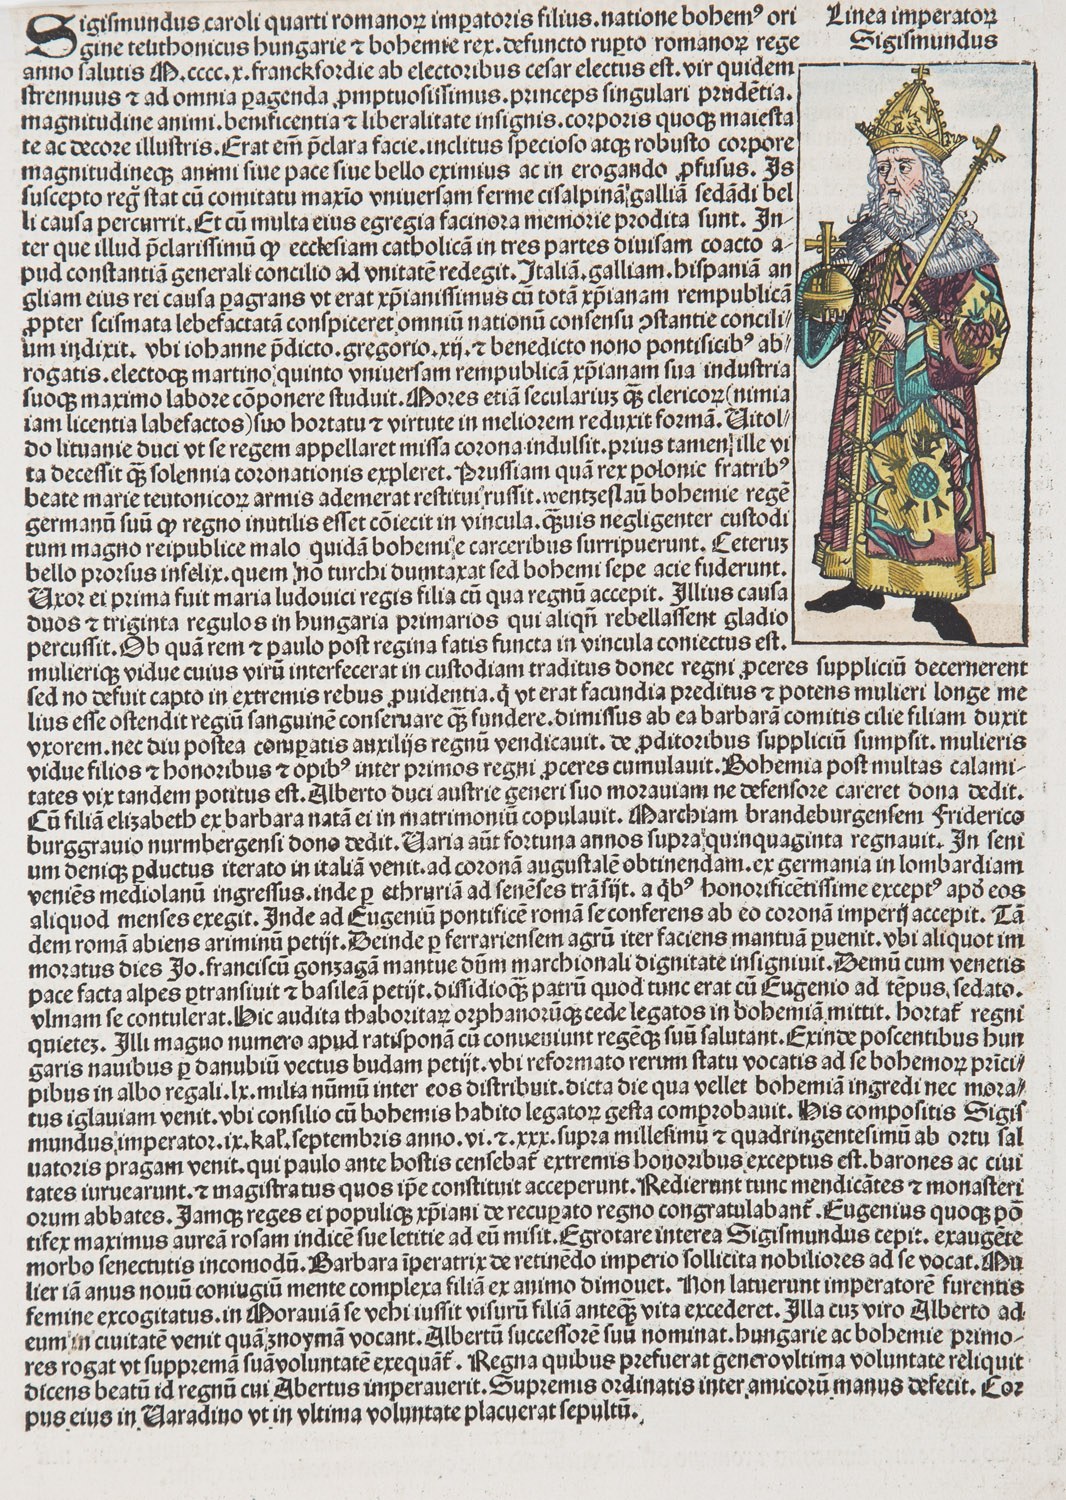 Linea imperatoꝝ
Sigismundus
Sigismundus caroli quarti romanoꝝ imꝑatoris filius.natione bohemꝰ ori
gine teuthonicus hungarie ⁊ bohemie rex.defuncto ruꝑto romanoꝝ rege
anno salutis M.cccc.x.franckfordie ab electoribus cesar electus est.vir quidem
strennuus ⁊ ad omnia ꝑagenda ꝓmptuosissimus.princeps singulari prudẽtia.
magnitudine animi.beneficentia ⁊ liberalitate insignis.corporis quoqꝫ maiesta
te ac decore illustris.Erat em̃ p̃clara facie.inclitus specioso atqꝫ robusto corpore
magnitudineqꝫ animi siue pace siue bello eximius ac in erogando ꝓfusus. Is
suscepto reg̃ stat cũ comitatu maxĩo vniuersam ferme cisalpinã galliã sedãdi bel
li causa percurrit.Et cũ multa eius egregia facinora memorie prodita sunt. In-
ter que illud p̃clarissimũ ꝙ ecclesiam catholicã in tres partes diuisam coacto a-
pud constantiã generali concilio ad vnitatẽ redegit.Italiã.galliam.hispaniã an
gliam eius rei causa ꝑagrans vt erat xp̃ianissimus cũ totã xp̃ianam rempublicã
ꝓpter scismata lebefactatã conspiceret omniũ nationũ consensu ꝯstantie concili/
um indixit. vbi iohanne p̃dicto.gregorio.xij.⁊ benedicto nono pontificibꝰ ab/
rogatis.electoqꝫ martino quinto vniuersam rempublicã xp̃ianam sua industria
suoqꝫ maximo labore cõponere studuit.Mores etiã seculariuz qꝫ̃ clericoꝝ(nimia
iam licentia labefactos)suo hortatu ⁊ virtute in meliorem reduxit formã.Uitol/
do lituanie duci vt se regem appellaret missa corona indulsit.prius tamen ille vi
ta decessit qꝫ̃ solennia coronationis expleret.Prussiam quã rex polonie fratribꝰ
beate marie teutonicoꝝ armis ademerat restitui iussit.wentzeslaũ bohemie regẽ
germanũ suũ ꝙ regno inutilis esset cõiecit in vincula.qꝫ̃uis negligenter custodi
tum magno reipublice malo quidã bohemie carceribus surripuerunt. Ceteruz
bello prorsus infelix.quem nõ turchi dumtaxat sed bohemi sepe acie fuderunt.
Uxor ei prima fuit maria ludouici regis filia cũ qua regnũ accepit. Illius causa
duos ⁊ triginta regulos in hungaria primarios qui aliqñ rebellassent gladio
percussit.Ob quã rem ⁊ paulo post regina fatis functa in vincula coniectus est.
mulieriqꝫ vidue cuius virũ interfecerat in custodiam traditus donec regni ꝓceres suppliciũ decernerent
sed no defuit capto in extremis rebus ꝓuidentia.q̃ vt erat facundia preditus ⁊ potens mulieri longe me
lius esse ostendit regiũ sanguinẽ conseruare qꝫ̃ fundere.dimissus ab ea barbarã comitis cilie filiam duxit
vxorem.nec diu postea comꝑatis auxilijs regnũ vendicauit. de ꝓditoribus suppliciũ sumpsit. mulieris
vidue filios ⁊ honoribus ⁊ opibꝰ inter primos regni ꝓceres cumulauit.Bohemia post multas calami-
tates vix tandem potitus est.Alberto duci austrie generi suo morauiam ne defensore careret dona dedit.
Cũ filiã elizabeth ex barbara natã ei in matrimoniũ copulauit. Marchiam brandeburgensem Friderico
burggrauio nurmbergensi dono dedit.Uaria aũt fortuna annos supra quinquaginta regnauit. In seni
um deniqꝫ ꝑductus iterato in italiã venit.ad coronã augustalẽ obtinendam.ex germania in lombardiam
veniẽs mediolanũ ingressus.inde ꝑ ethruriã ad senẽses trãsijt. a q̃bꝰ honorificẽtissime exceptꝰ apd̓ eos
aliquod menses exegit. Inde ad Eugeniũ pontificẽ romã se conferens ab eo coronã imperij accepit. Tã
dem romã abiens ariminũ petijt.Deinde ꝑ ferrariensem agrũ iter faciens mantuã ꝑuenit.vbi aliquot im
moratus dies Jo.franciscũ gonzagã mantue dñm marchionali dignitate insigniuit.Demũ cum venetis
pace facta alpes ꝑtransiuit ⁊ basileã petijt.dissidioqꝫ patrũ quod tunc erat cũ Eugenio ad tẽpus sedato.
vlmam se contulerat.Hic audita thaboritaꝝ orphanorũqꝫ cede legatos in bohemiã mittit. hortat̃ regni
quietez. Illi magno numero apud ratisponã cũ conueniunt regẽqꝫ suũ salutant.Exinde poscentibus hun
garis nauibus ꝑ danubiũ vectus budam petijt.vbi reformato rerum statu vocatis ad se bohemoꝝ prĩci-
pibus in albo regali.lx.milia nũmũ inter eos distribuit.dicta die qua vellet bohemiã ingredi nec mora/
tus iglauiam venit.vbi consilio cũ bohemis habito legatoꝝ gesta comprobauit. His compositis Sigis
mundus imperator.ix.kal̓.septembris anno.vi.⁊.xxx.supra millesimũ ⁊ quadringentesimũ ab ortu sal
uatoris pragam venit.qui paulo ante hostis censebat̃ extremis honoribus exceptus est.barones ac ciui
tates iuruearunt.⁊ magistratus quos ip̃e constituit acceperunt.Redierunt tunc mendicãtes ⁊ monasteri
orum abbates.Iamqꝫ reges ei populiqꝫ xp̃iani de recuꝑato regno congratulabant̃.Eugenius quoqꝫ põ
tifex maximus aureã rosam indicẽ sue letitie ad eũ misit.Egrotare interea Sigismundus cepit. exaugẽte
morbo senectutis incomodũ.Barbara ĩperatrix de retinẽdo imperio sollicita nobiliores ad se vocat.Mu
lier iã anus nouũ coniugiũ mente complexa filiã ex animo dimouet. Non latuerunt imperatorẽ furentis
femine excogitatus.in Morauiã se vehi iussit visurũ filiã anteqꝫ̃ vita excederet.Illa cuz viro Alberto ad
eum in ciuitatẽ venit quã znoymã vocant.Albertũ successorẽ suũ nominat.hungarie ac bohemie primo-
res rogat vt supremã suã voluntatẽ exequãt̃. Regna quibus prefuerat genero vltima voluntate reliquit
dicens beatũ id regnũ cui Abertus imperauerit.Supremis ordinatis inter amicorũ manus defecit. Cor
pus eius in Uaradino vt in vltima voluntate placuerat sepultũ.